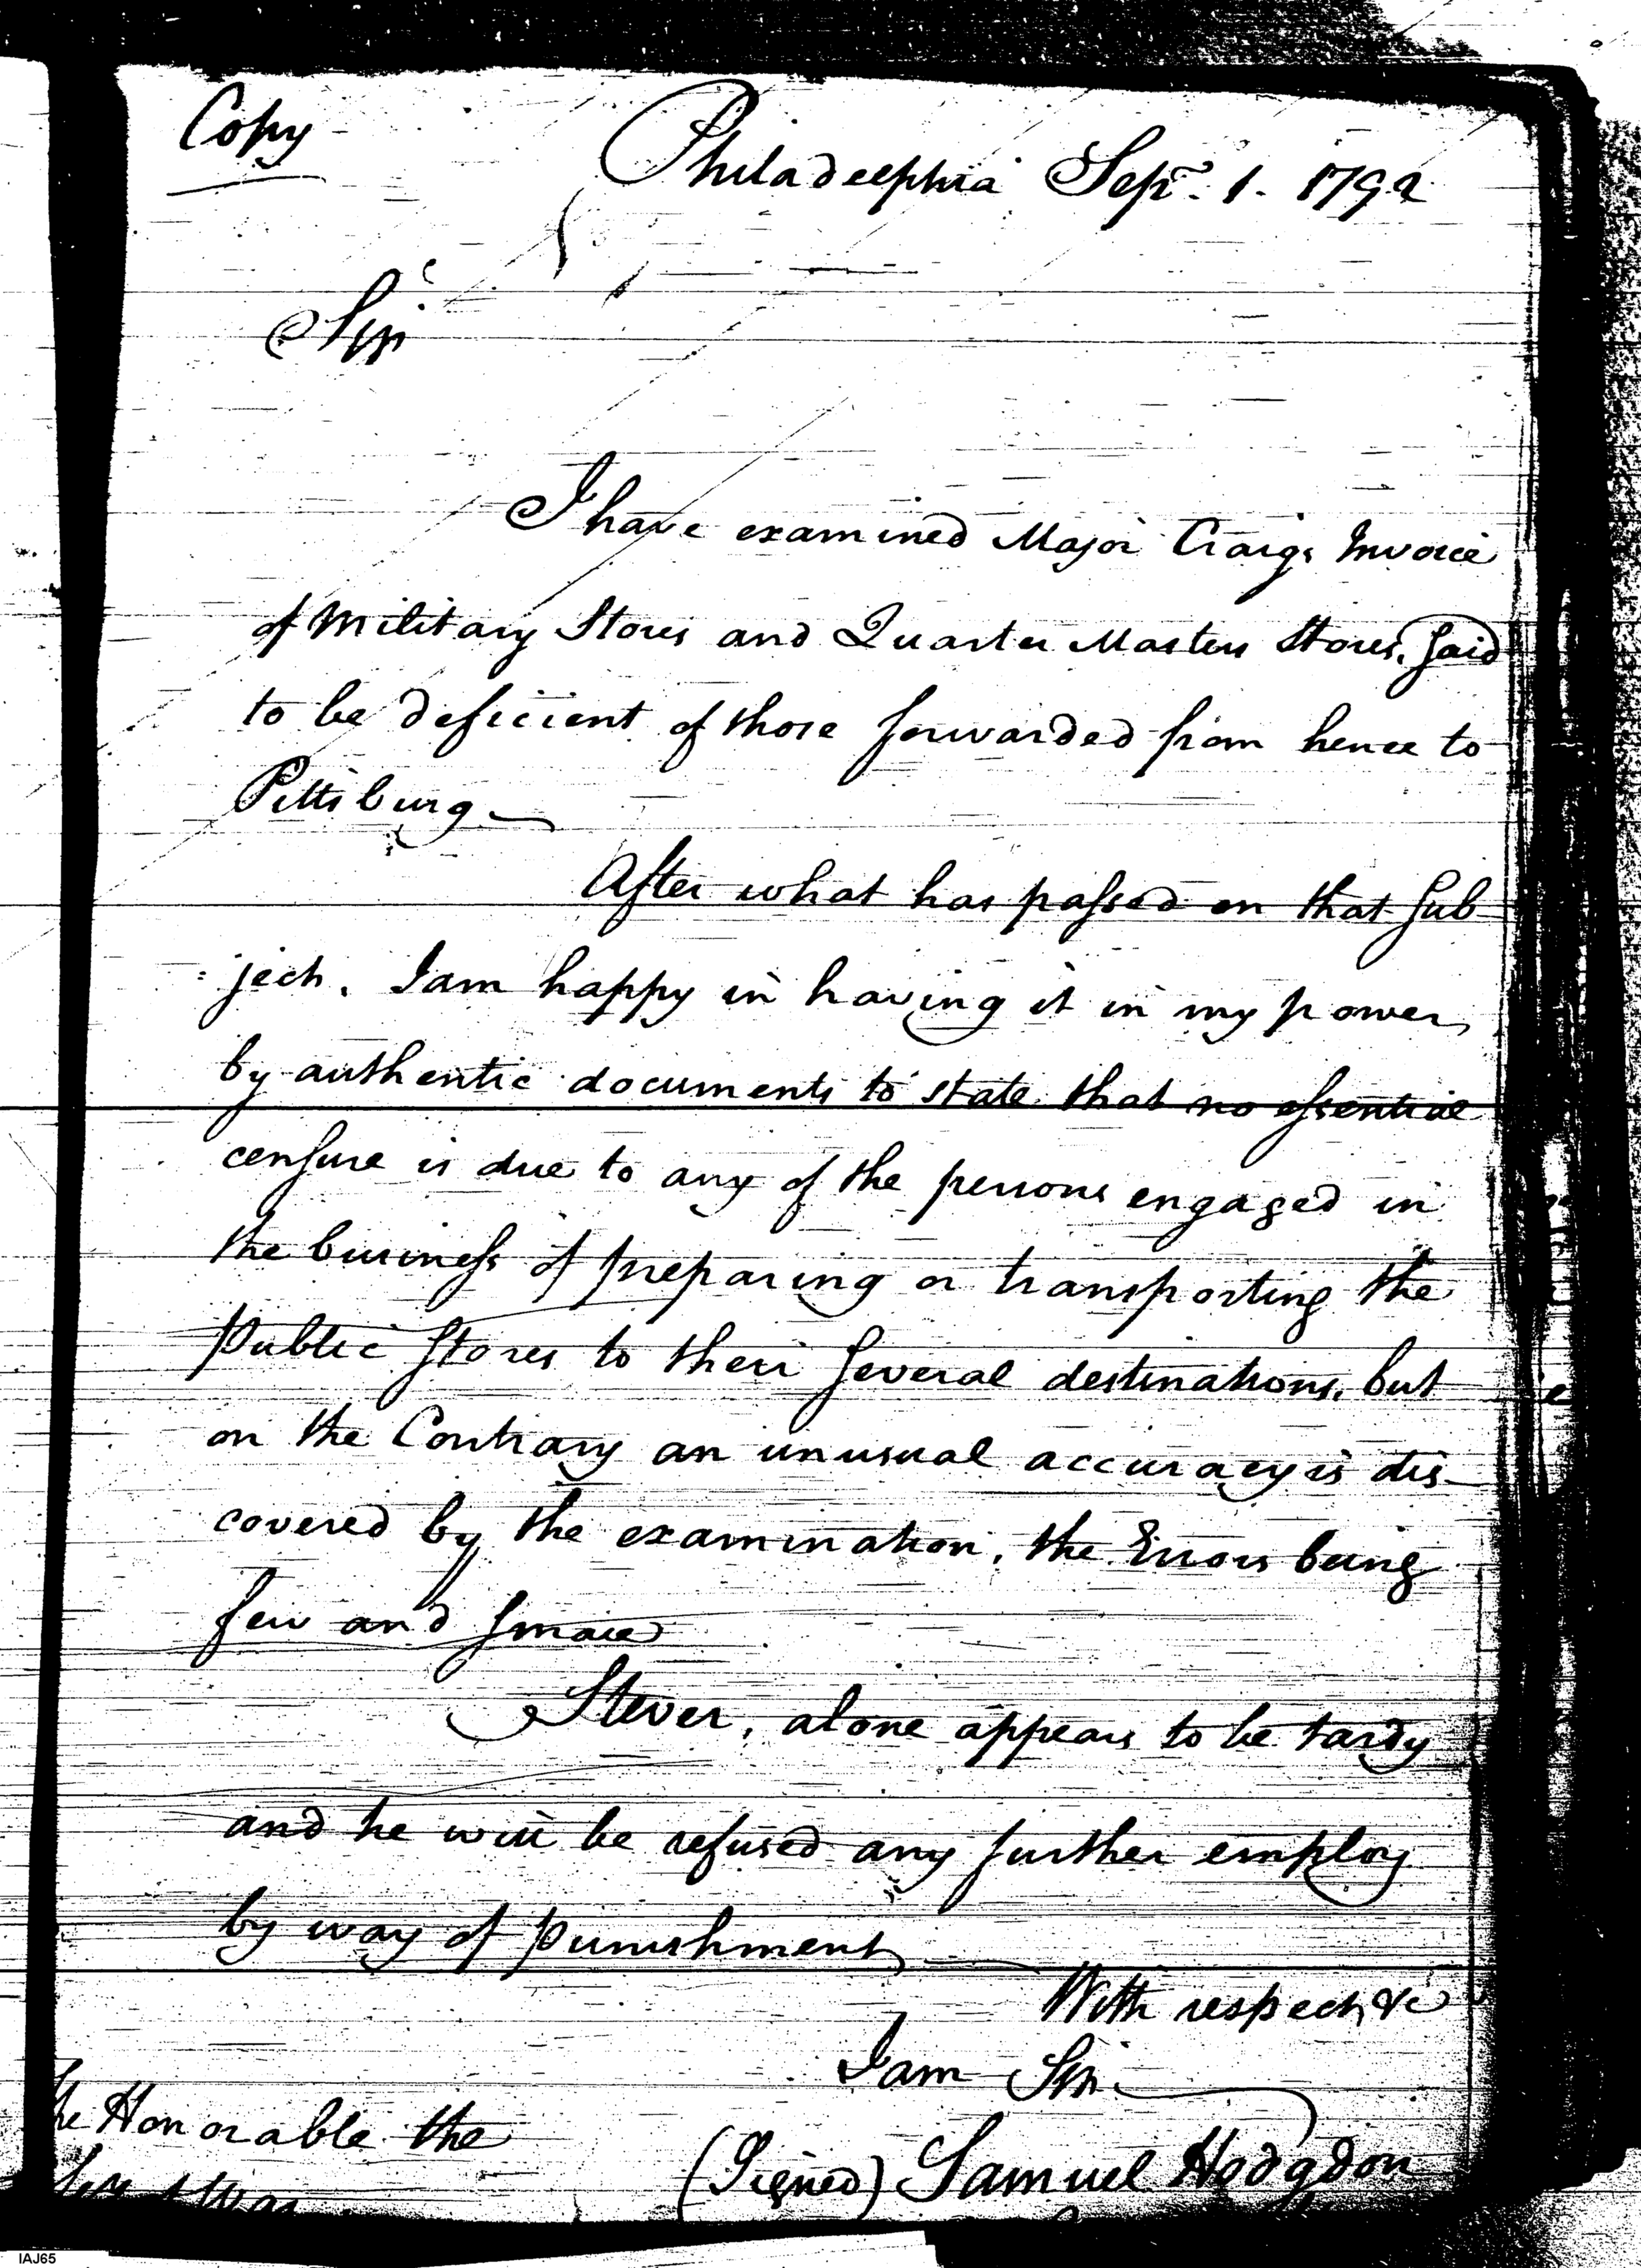 Copy
Philadelphia Sepr. 1. 1792
Sir
I have examined Major Craigs Invoice
of Military Stores and Quarter Masters Stores, said
to be deficient of those forwarded from hence to
Pittsburg
After what has passed on that sub
:ject. I am happy in having it in my power,
by authentic documents to state that no essential
censure is due to any of the persons engaged in
the business of preparing or transporting the
Public stores to their several destinations, but
on the Contrary an unusual accuracy is dis-
covered by the examination, the Errors being
few and small
Stever, alone appears to be tardy
and he will be refused any further employ
by way of Punishment
With respect &c
I am Sir
The Honorable the
(Signed) Samuel Hodgdon
Secy of War
IAJ65